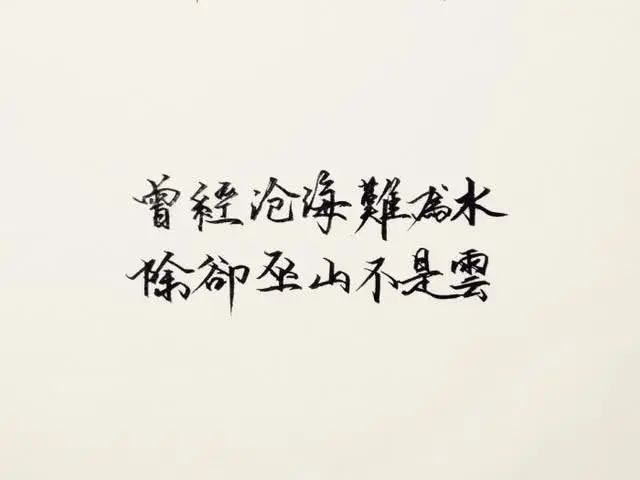 曾經沧海難為水
除卻巫山不是雲